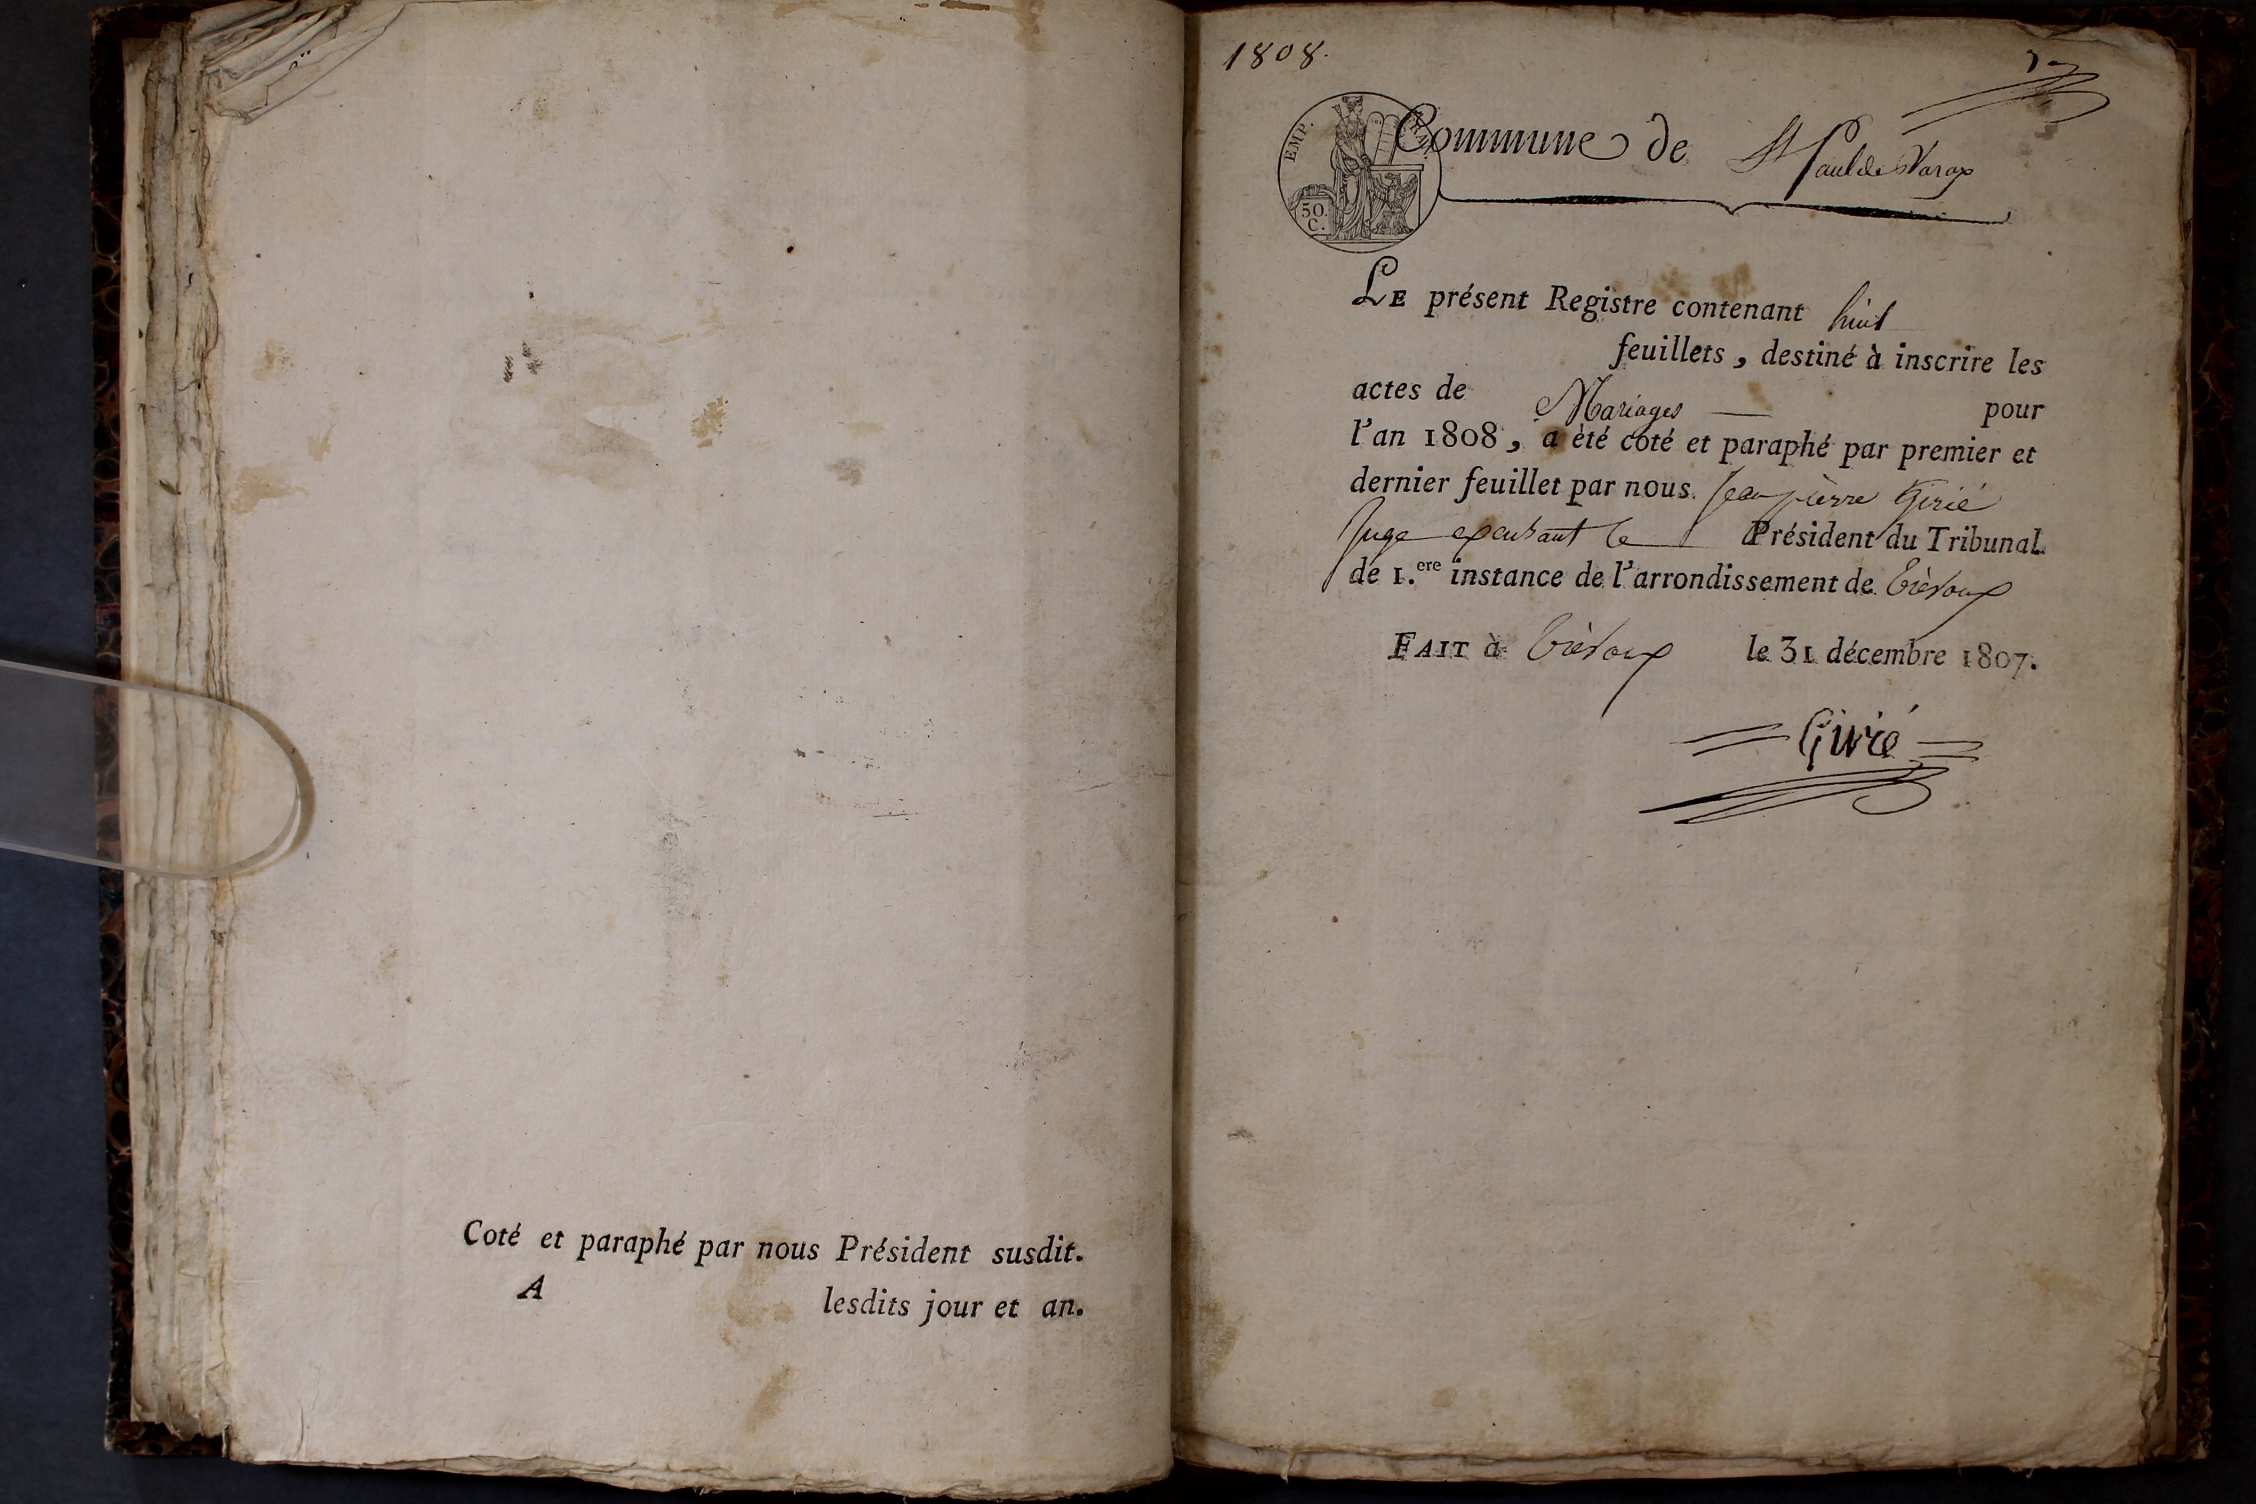 Coté et paraphé par nous Président susdit.
A lesdits jour et an.
1808.
EMP. FRAN.
50.
C.
Commune de St Paul de Varax
LE présent Registre contenant huit
feuillets, destiné à inscrire les
actes de Mariages — pour
l'an 1808, a été coté et paraphé par premier et
dernier feuillet par nous Jean pierre Girié
Juge le Président du Tribunal
de 1.ere instance de l'arrondissement de Trévoux
FAIT à Trévoux le 31 décembre 1807.
Girié